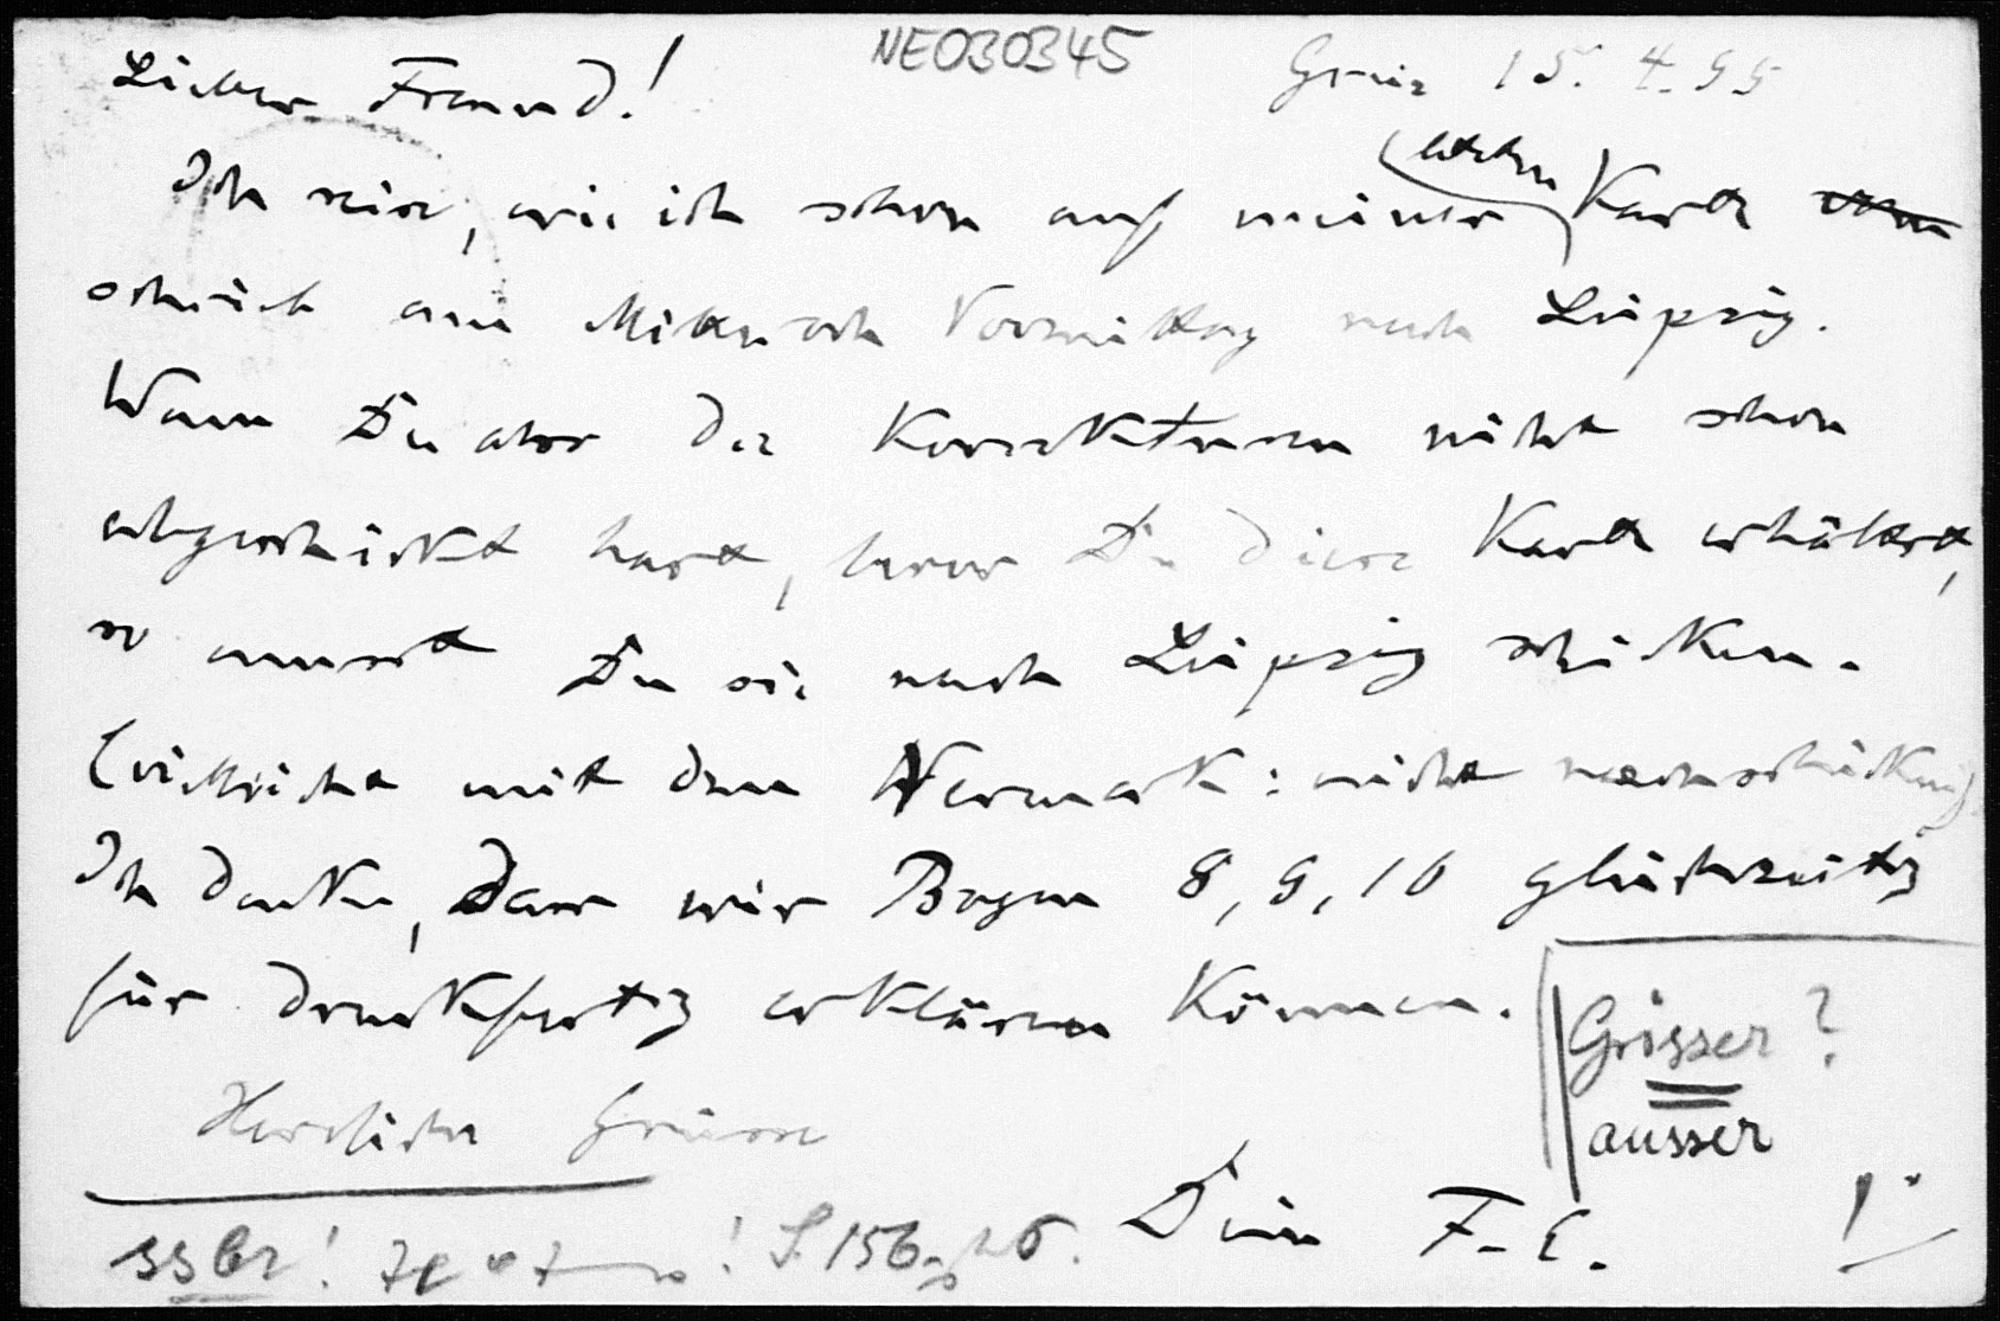 NE030345
Lieber Freund! Greiz 15. 4. 99
Ich reise, wie ich schon auf meiner letzten Karte
schrieb am Mittwoch Vormittag nach Leipzig.
Wenn Du aber die Korrekturen nicht schon
abgeschickt hast, bevor Du diese Karte erhältst,
so musst Du sie nach Leipzig schicken.
(vielleicht mit dem Vermerk: nicht nachschicken)
Ich denke, dass wir Bogen 8, 9, 10 gleichzeitig
für druckfertig erklären können.
Herzliche Grüsse
Dein F. E.
Grösser?
ausser
!
S. 156